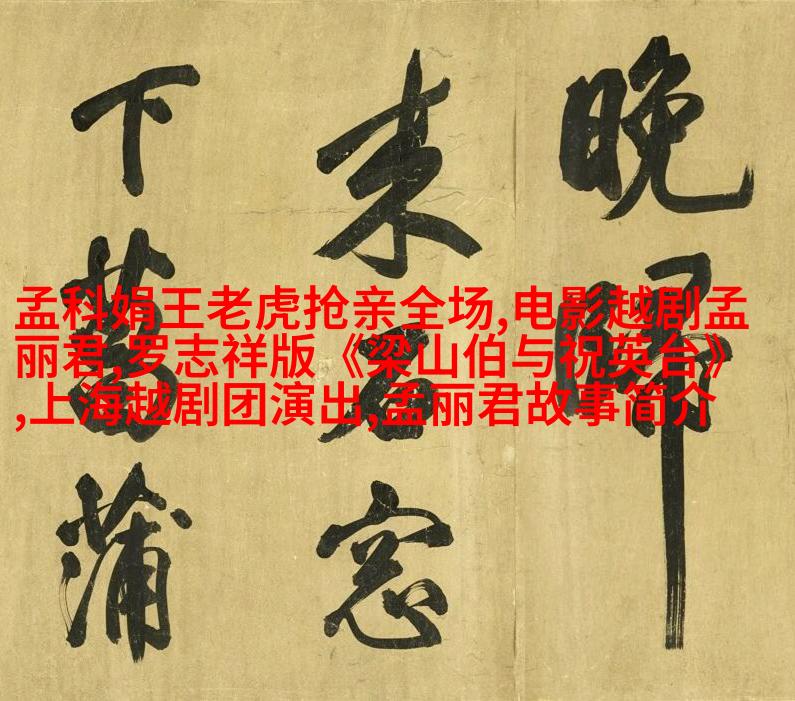 晚帰
来石窓
下菖蒲
孟科娟王老虎抢亲全场,电影越剧孟
丽君,罗志祥版《梁山伯与祝英台》
,上海越剧团演出,孟丽君故事简介